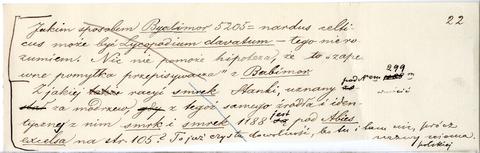 22
Jakim sposobem Byalimor 5205 = nardus celti
cus może być Lycopodium clavatum — tego niero
zumiem. Nic nie pomoże hipoteza, że to zape
wne pomyłka przepisywacza" z Babimor
299
Z jakiej racyi smrek Stanki, uznany pod Nom
za modrzew, gdy z tegoż samego źródła i iden-
tycznej z nim smrk i smrek 1188 jest pod Abies
excelsa na str. 105? To już czysta dowolność, bo tu i tam nic, prócz
nazwy
polskiej